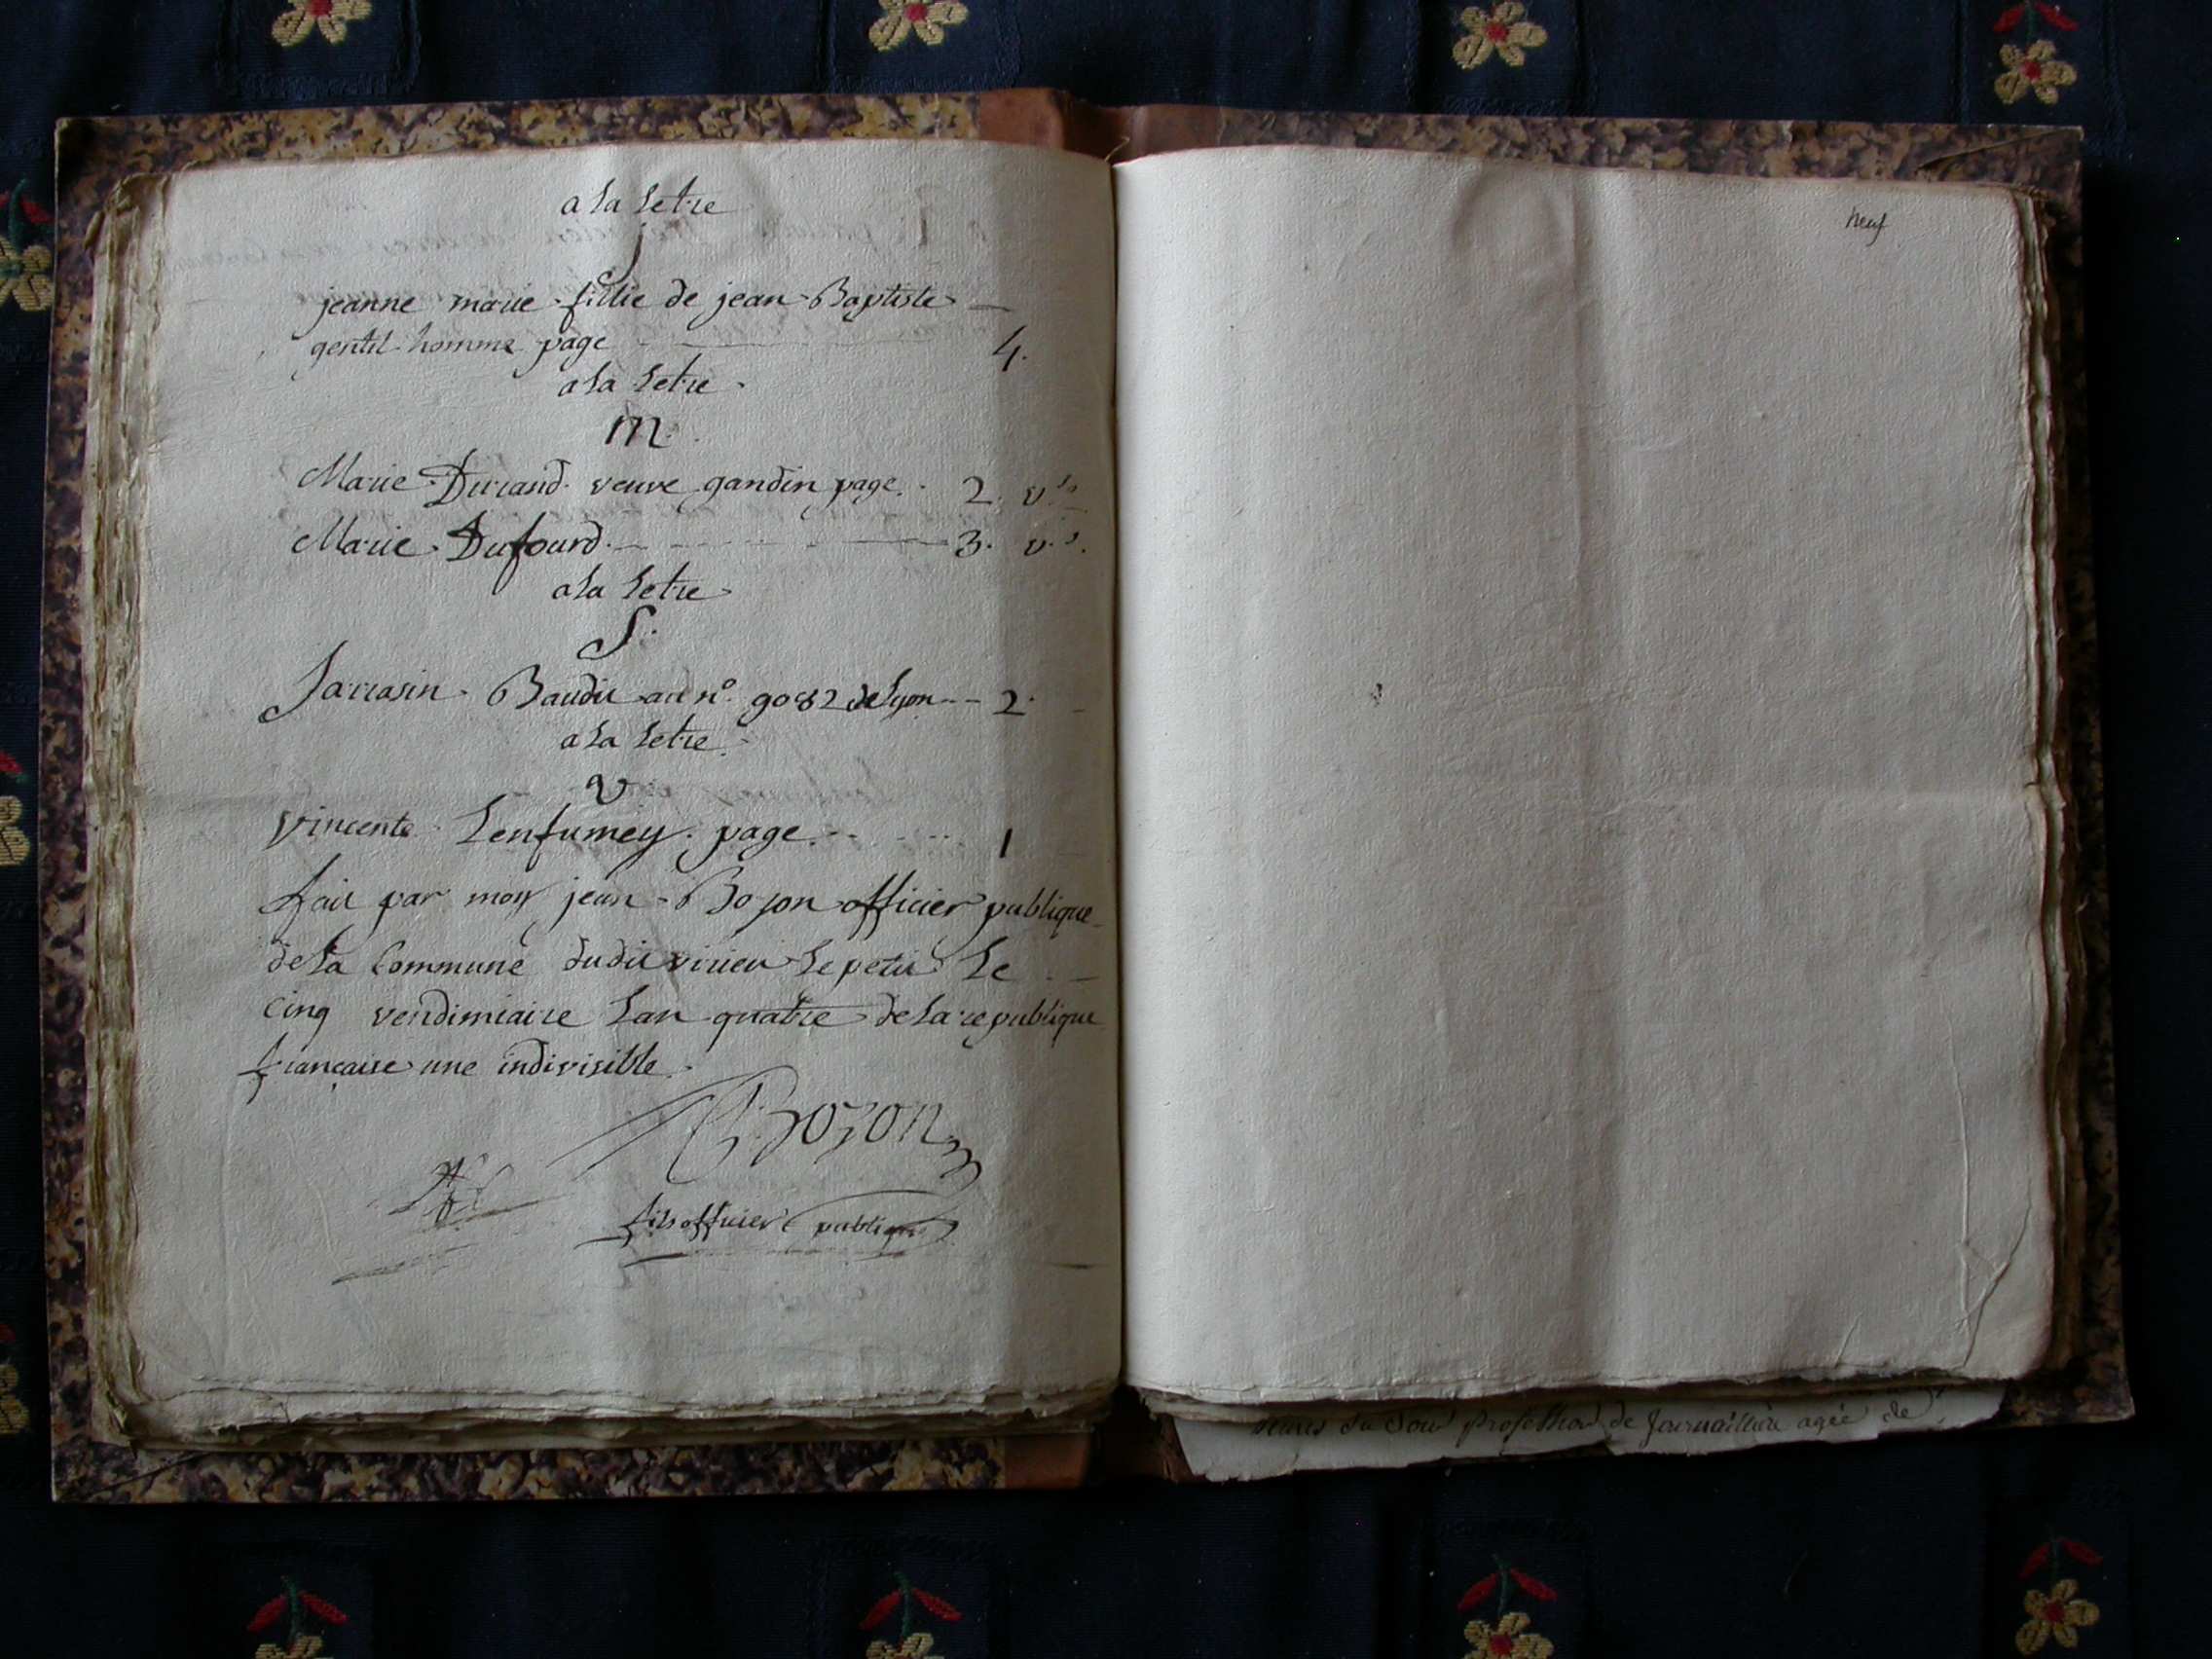 a la letre
j
jeanne marie fillie de jean Baptiste
gentil homme page 4.
a la letre
m.
Marie Durand veuve gandin page. 2. v.so
Marie Dufourd. 3. v.so
a la letre
S.
Sarrasin Baudit au n° 9082 de Lyon 2
a la letre
v
vincente Lenfumey. page. 1
fait par moy jean Bozon officier publique
de la Commune dudit virieu le petit Le
cinq vendimiaire Lan quatre de la republique
francaise une indivisible.
Bozon
fils officier publique
neuf
heures du Soir profession de Journailliere agée de